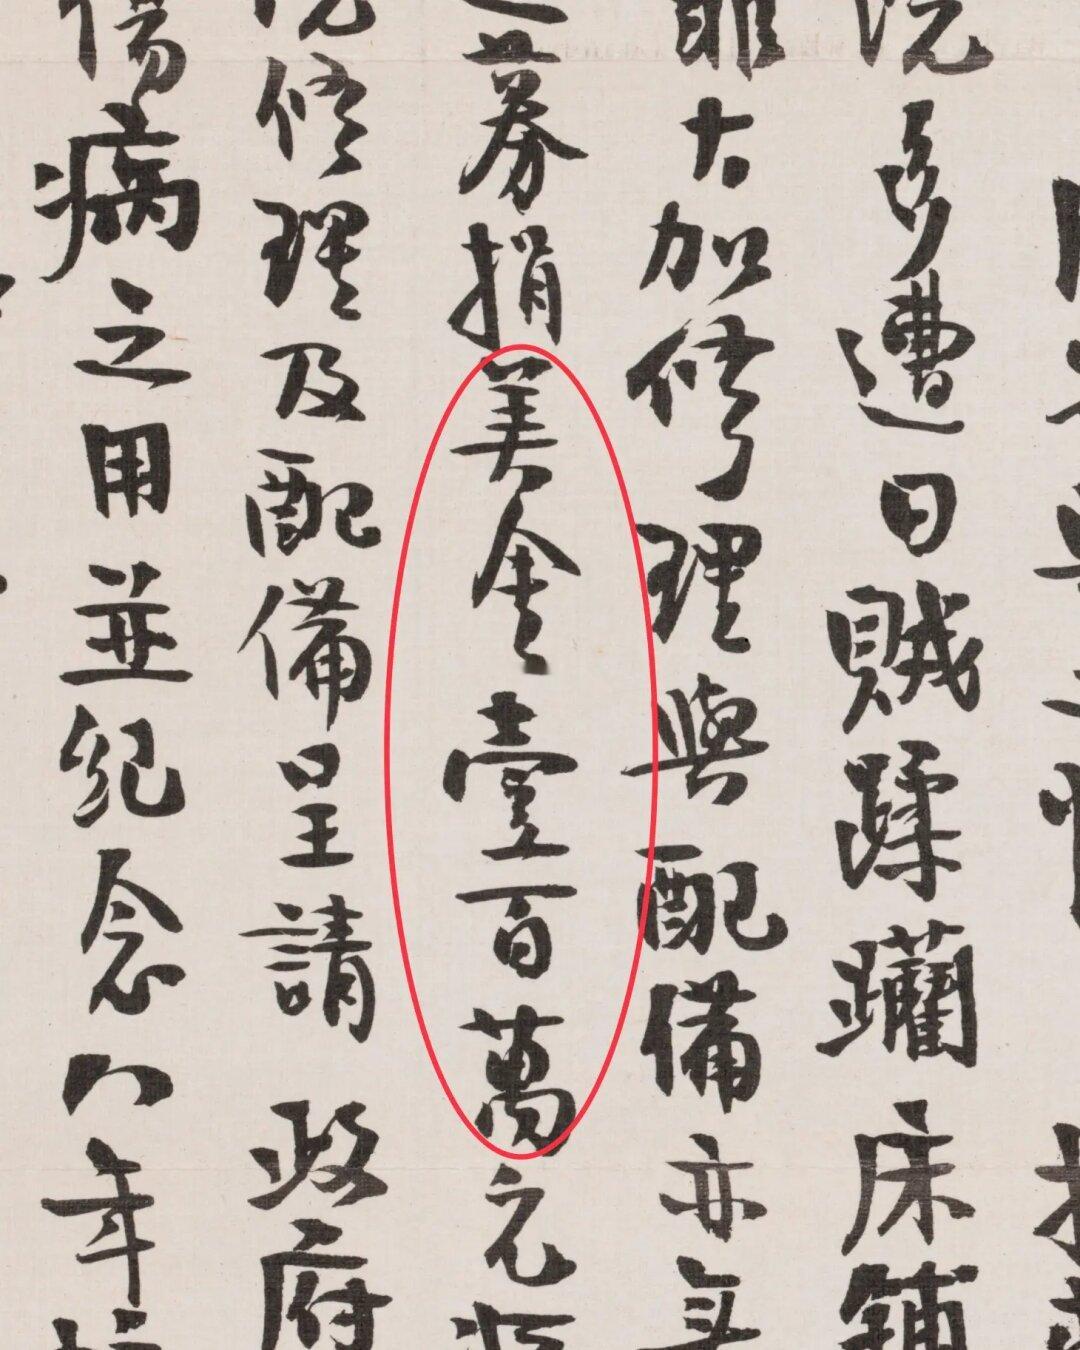 院多遭日賊蹂躪床鋪
能大加修理與配備亦每
募捐美金壹百萬元將
院修理及配備呈請政府
傷病之用並紀念八年